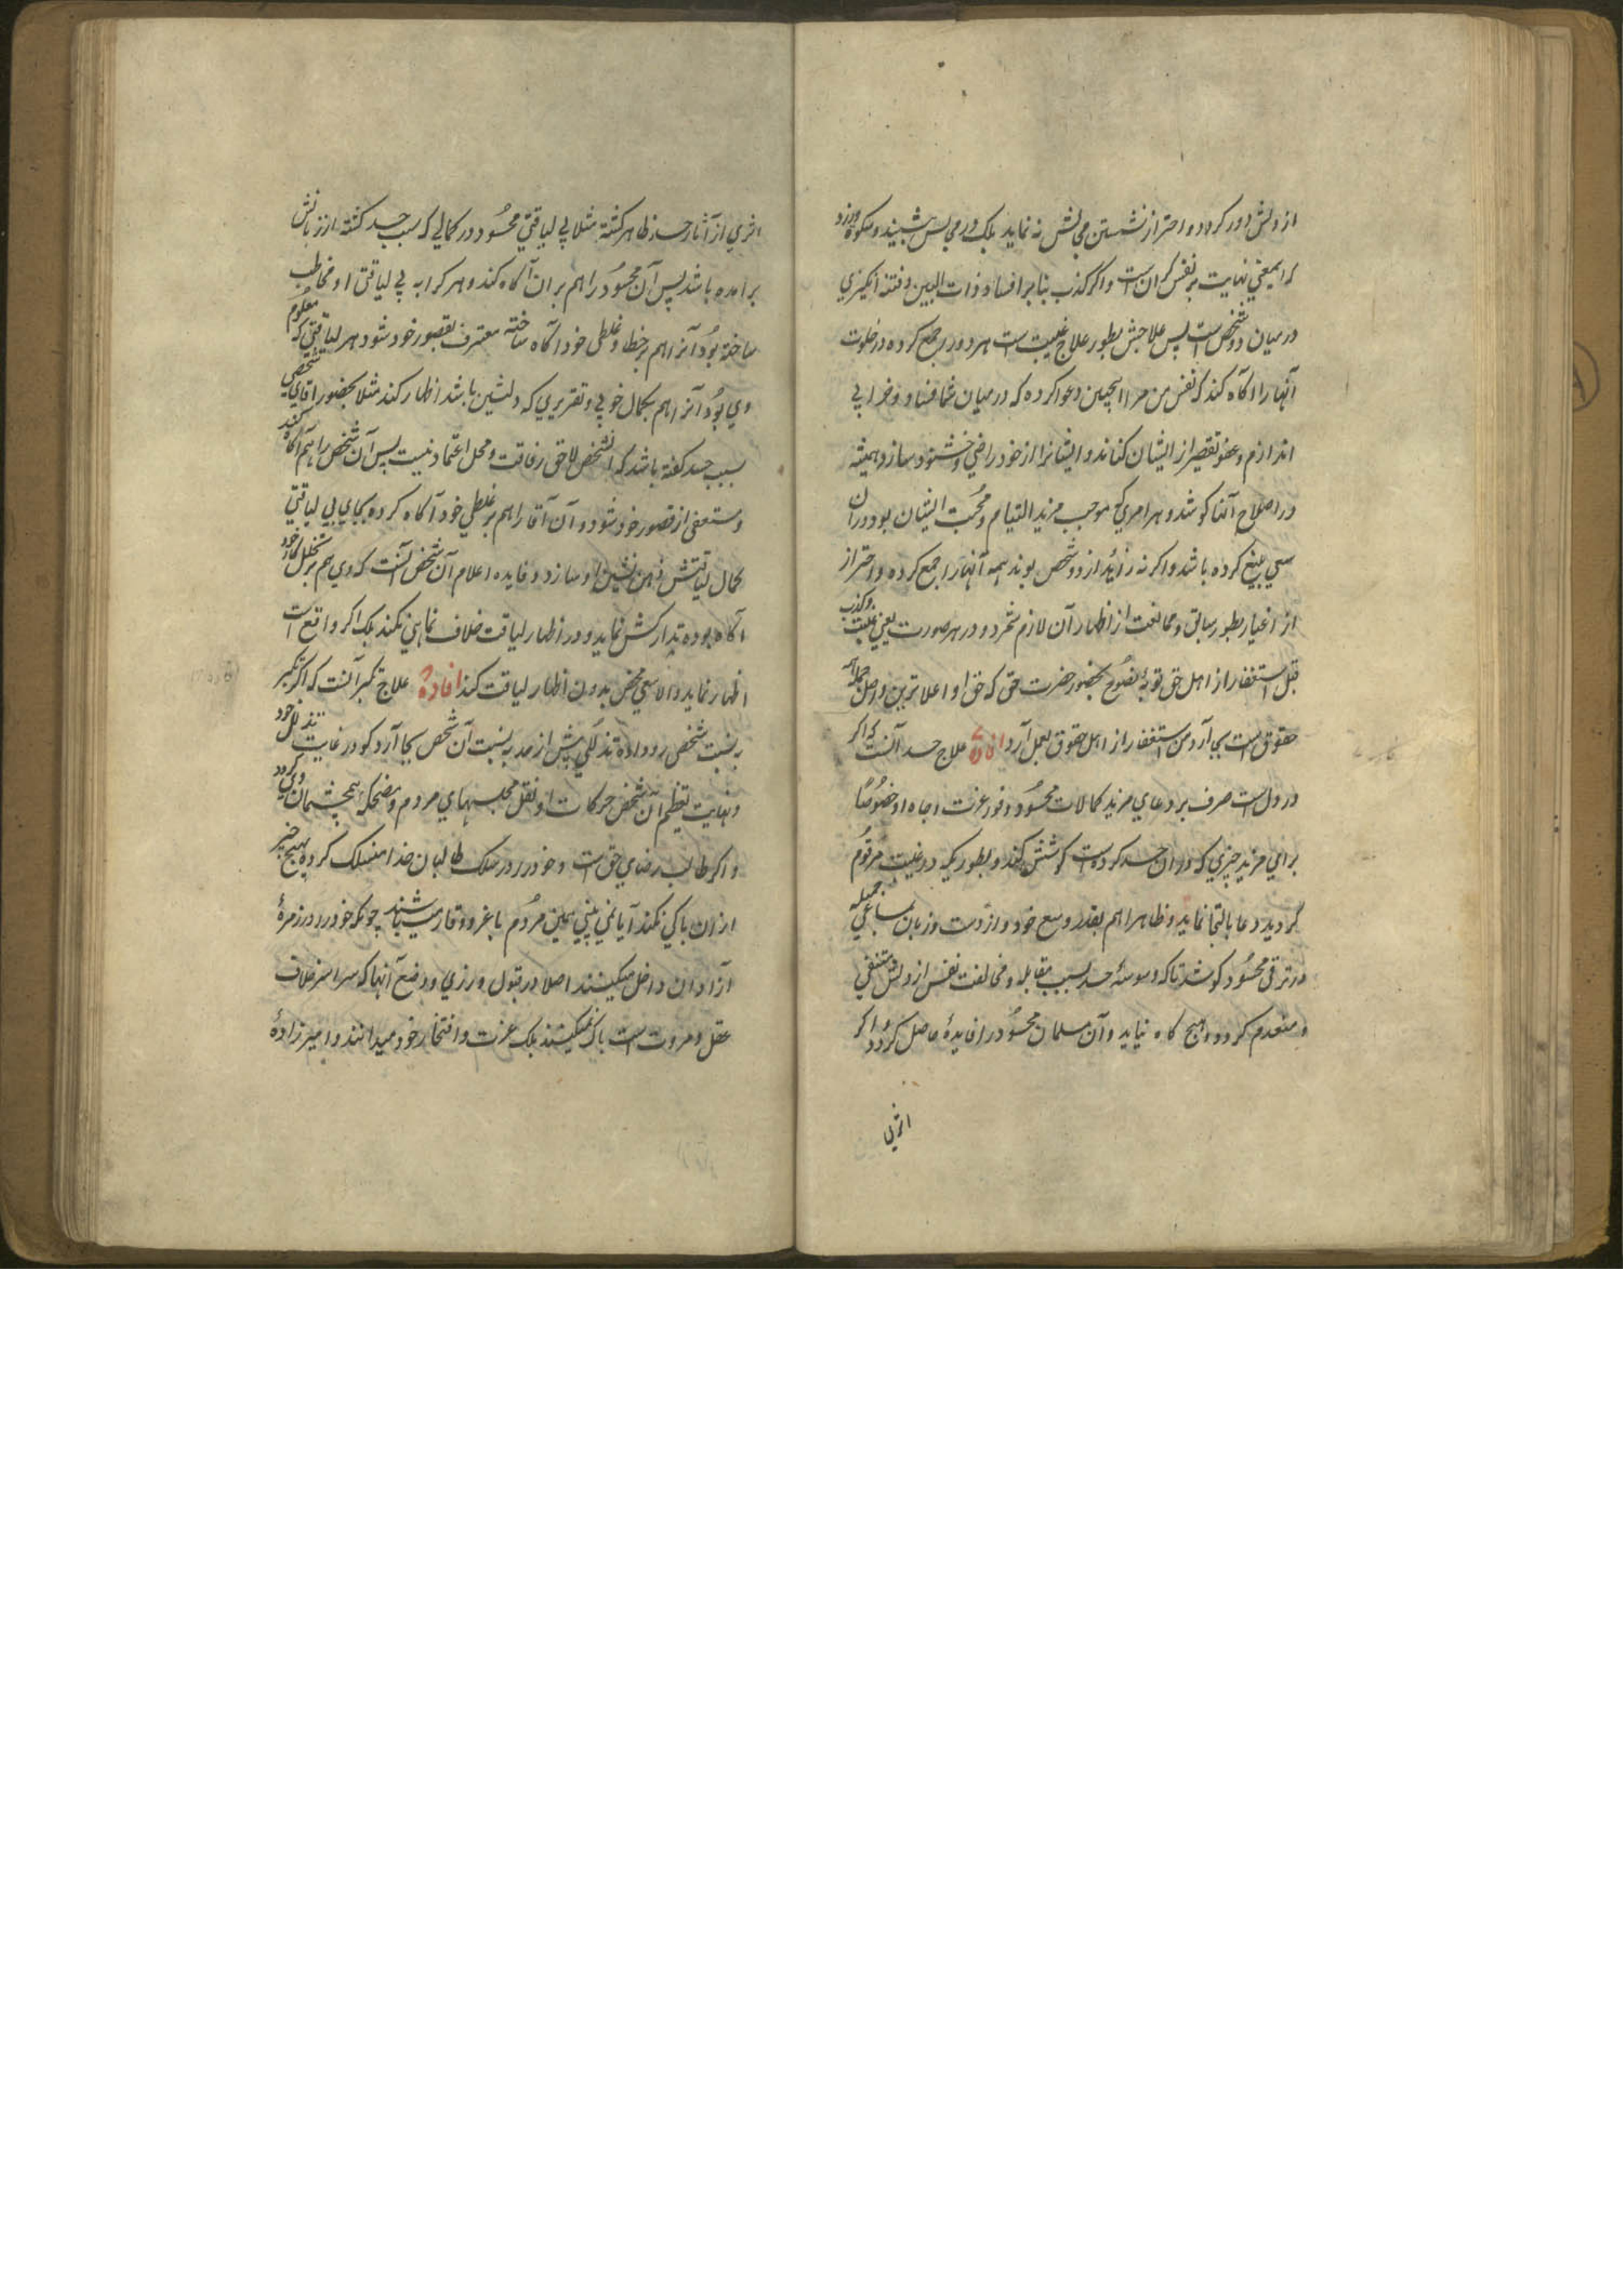 از دلش دور کردد و احتراز نشستن مجالس نه نماید بلکه در مجالس بنشیند و سکوت ورزد
که اینمعنی نهایت بر نفس کران است و اگر کذب بنا بر افساد ذات البین و فتنه انکیزی
در میان دو شخص است پس علاجش بطور علاج غیبت است هر دو را جمع کرده در خلوت
آنها را آگاه کند که نفس من مرا اینچنین دعوا کرده که در میان شما فساد و خرابی
اندازم و عفو تقصیر از ایشان کناند و ایشانرا از خود راضی و خوشنود سازد و همیشه
در اصلاح آنها کوشد و هر امری که موجب مزید التیام و محبت ایشان بود در آن
سعی بلیغ کرده باشد و اگر نه زائد از دو شخص بودند همه آنها را جمع کرده و احتراز
از اغیار بطور سابق و ممانعت از اظهار آن لازم شمرد و در هر صورت یعنی غیبت و کذب
قبل استغفار از اهل حق توبهٔ نصوح بحضور حضرت حق که حق او اعلا ترین و اصل جمله
حقوق است بجا آرد من استغفار از اهل حقوق بعمل آرد افادهٔ علاج حسد آنست که اگر
در دل است صرف بر دعای مزید کمالات محسود و فور عزت و جاه او خصوصًا
برای مزید چیزی که در ان حسد کرده است کوشش کند و بطوریکه در غیبت مرقوم
گردید دعا بالتجا نماید و ظاهرا هم بقدر وسع خود و از دست و زبان بمساعی جمیله
در ترقی محسود کوشد تا که وسوسهٔ حسد بسبب مقابله و مخالفت نفس از دلش منتفی
و منعدم کردد و هیچ کاه نیاید و آن مسلمان محسود را فایدهٔ حاصل کردد و اگر
اثری
اثری از آثار حسد ظاهر کشته مثلا بی لیاقتی محسود در کمالی که سبب حسد کشته از زبانش
برامده باشد پس آن محسود را هم بران آگاه کند و هر کرا به بی لیاقتی او مخاطب
ساخته بود آنرا هم بر خطا و غلطی خود آگاه ساخته معترف بقصور خود شود و هر لیاقتی که معلوم
وی بود آنرا هم بکمال خوبی و تقریری که دلنشین باشد اظهار کند مثلا بحضور آقای شخصی
بسبب حسد کفته باشد که این شخص لایق رفاقت و محل اعتماد نیست پس آن شخص را هم آگاه کند
و مستعفی از قصور خود شود و آن آقا را هم بر غلطی خود آگاه کرده بجای بی لیاقتی
کمال لیاقتش ذهن نشین او سازد و فایده اعلام آن شخص آنست که وی هم بر تخلل کار خود
آگاه بوده تدارکش نماید و در اظهار لیاقت خلاف نمایی نکند بلکه اگر واقع است
اظهار نماید و الا سعی محض بدون اظهار لیاقت کند افادهٔ علاج تکبر آنست که اگر تکبر
به نسبت شخصی رو داده تذللی بیش از حد به نسبت آن شخص بجا آرد کو در غایت تذلل خود
و نهایت تعظیم آن شخص حرکات او نقل مجلسهای مردم و مضحکهٔ همچشمان وی کردد
و اگر طالب رضای حق است و خود را در سلک طالبان خدا منسلک کرده بهیچ چیز
ازان باکی نکند آیا نمی بینی همین مردم با غر و وقار میباشند چونکه خود را در زمرهٔ
آزادان داخل میکنند اصلا در قبول ورزی و وضع آنها که سراسر خلاف
عقل و مروت است باک نمیکنند بلکه عزت و افتخار خود میدانند و امیرزادهٔ